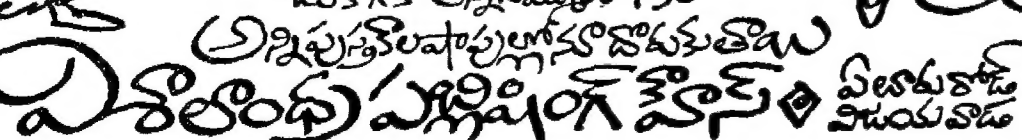 అన్నిపుస్తకాలషాపుల్లోనూదొరుకుతాయి
విశాలాంధ్ర పబ్లిషింగ్ హౌస్ ఏలూరురోడ్
విజయవాడ